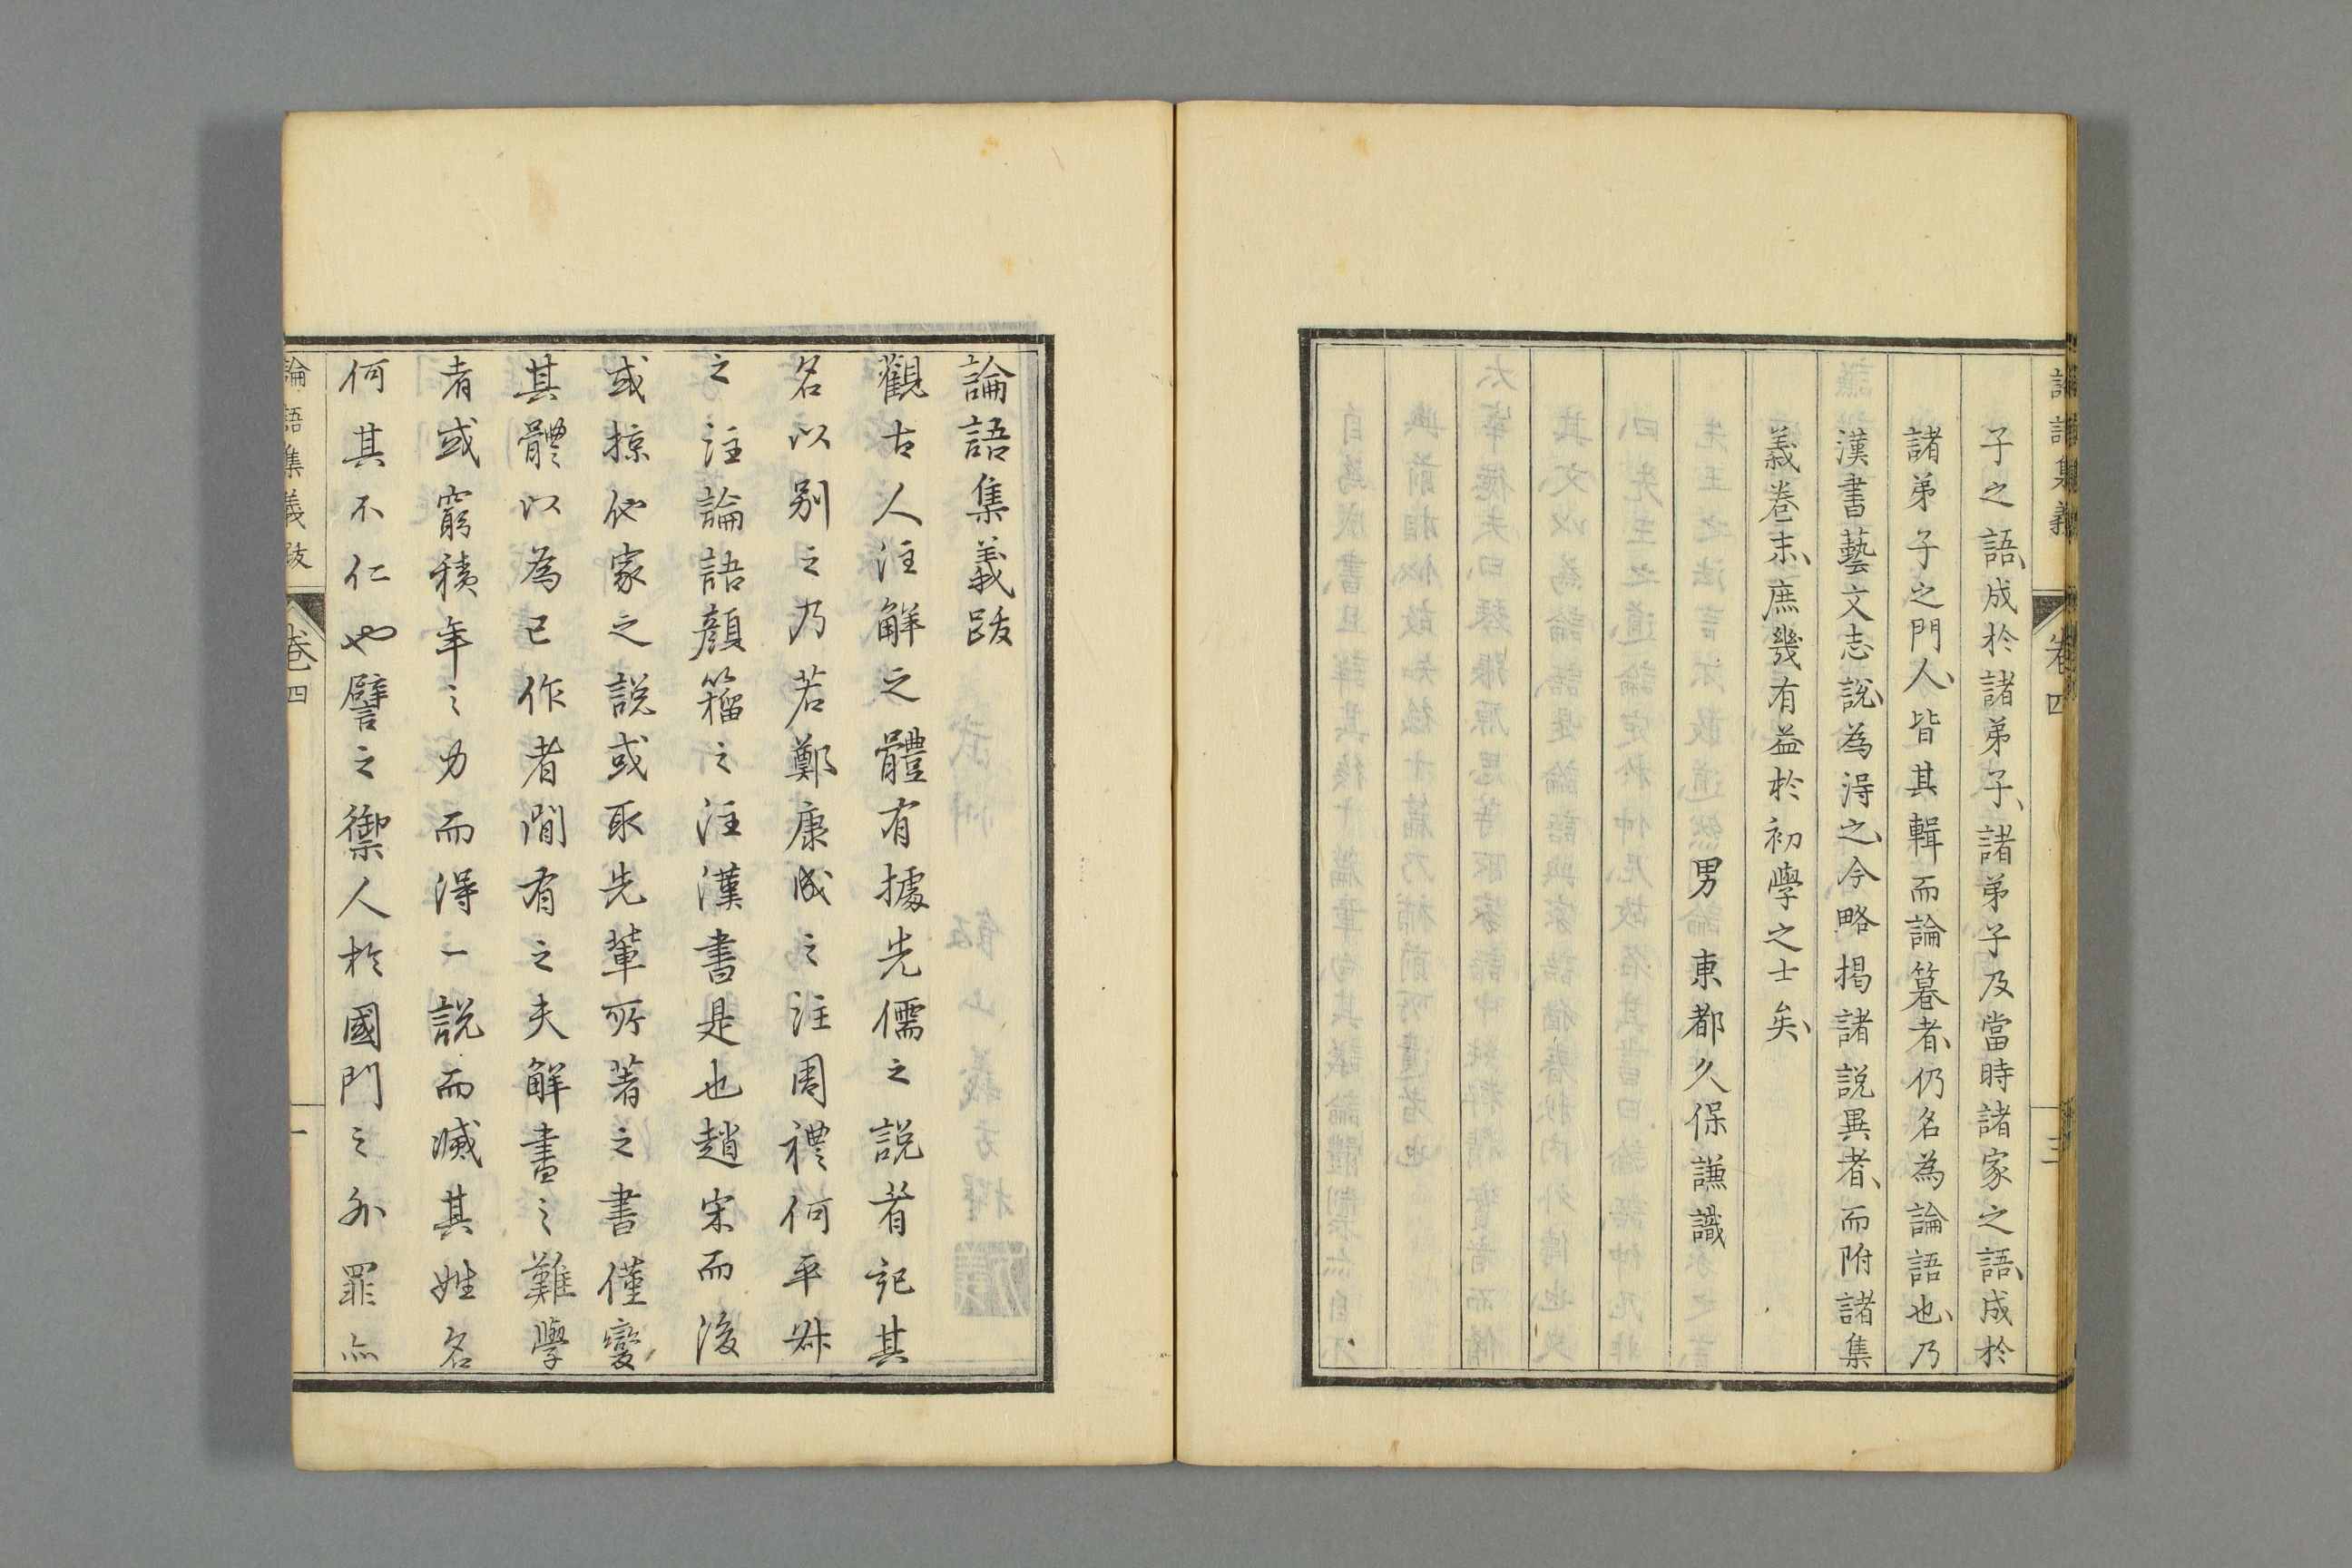 論語集義
卷四
三
子之語、成於諸弟子、諸弟子及當時諸家之語、成於
諸弟子之門人、皆其輯而論篹者、仍名為論語也、乃
漢書藝文志說、為淂之、今略揭諸説異者、而附諸集
義卷末、庶幾有益於初學之士矣、
男 東都久保謙識
論語集義跋
觀古人注解之體有據先儒之説者記其
名以别之乃若鄭康成之注周禮何平叔
之注論語顔籀之注漢書是也趙宋而後
或掠他家之説或取先輩所著之書僅變
其體以為已作者間有之夫解書之難學
者或窮積年之力而淂一説而滅其姓名
何其不仁也譬之禦人於國門之外罪亦
論語集義跋
卷四
一